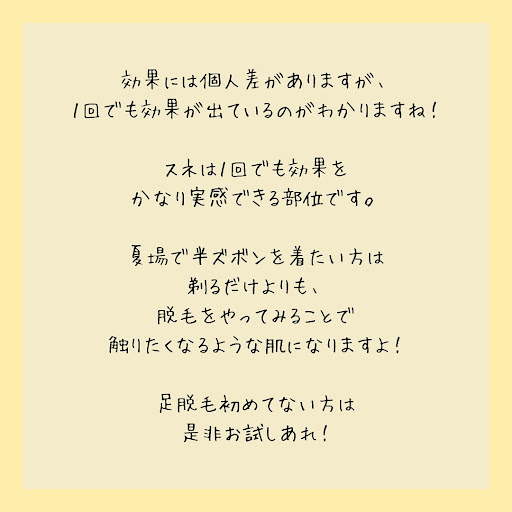 効果には個人差がありますが、
1回でも効果が出ているのがわかりますね！
スネは1回でも効果を
かなり実感できる部位です。
夏場で半ズボンを着たい方は
剃るだけよりも、
脱毛をやってみることで
触りたくなるような肌になりますよ！
足脱毛初めてない方は
是非お試しあれ！